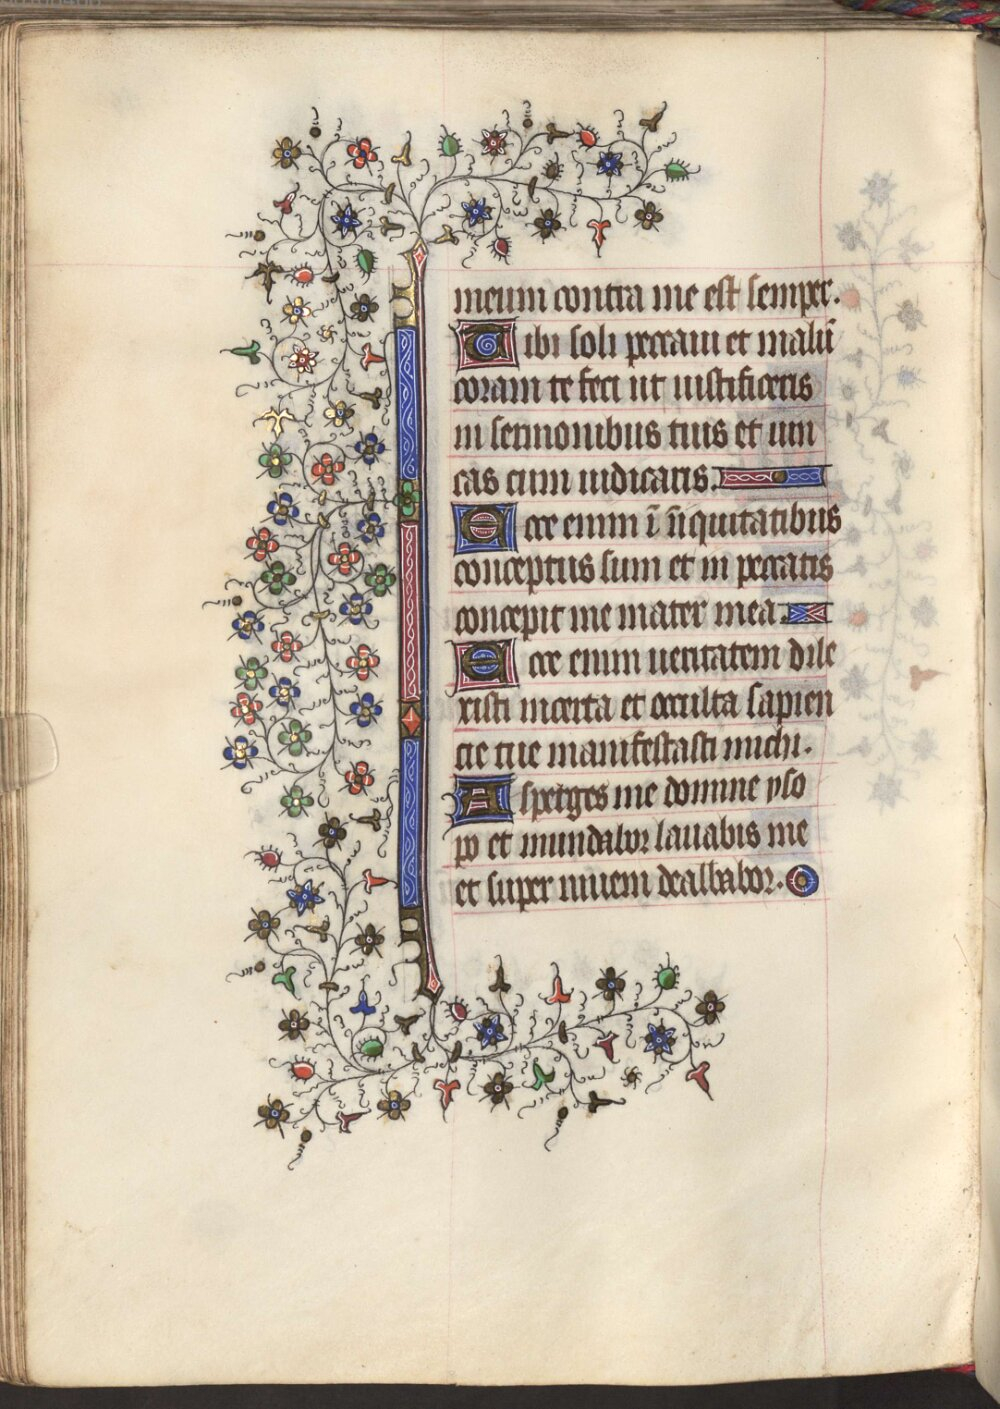 meum contra me est semper.
Tibi soli peccaui et malū
coram te feci ut iustificeris
in sermonibus tuis et uin
cas cum iudicaris.
Ecce enim ī iñquitatibus
conceptus sum et in peccatis
concepit me mater mea
Ecce enim ueritatem dile
xisti incerta et occulta sapien
cie tue manifestasti michi.
Asperges me domine yso
po et mundabor lauabis me
et super niuem dealbabor.